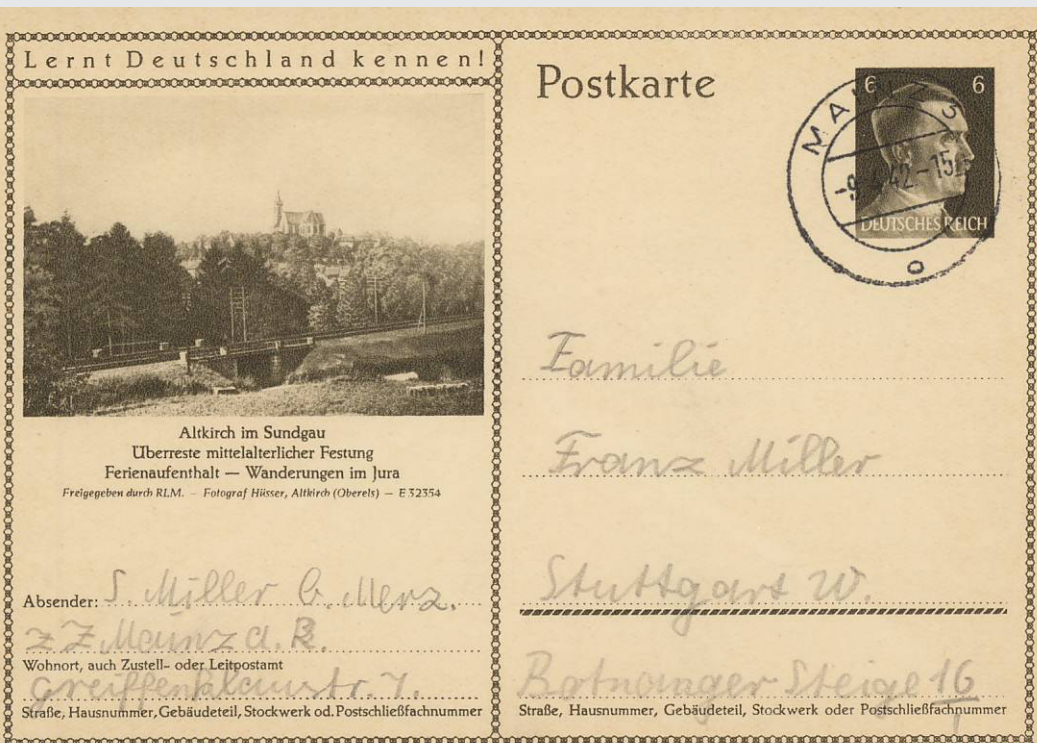 Lernt Deutschland kennen!
Altkirch im Sundgau
Überreste mittelalterlicher Festung
Ferienaufenthalt — Wanderungen im Jura
Freigegeben durch RLM. – Fotograf Hüsser, Altkirch (Oberels) — E 32354
Absender: S. Miller b. Merz.
z Z Mainz a. R.
Wohnort, auch Zustell- oder Leitpostamt
Greiffenklaustr. 7.
Straße, Hausnummer, Gebäudeteil, Stockwerk od. Postschließfachnummer
Postkarte
6 6
DEUTSCHES REICH
Familie
Franz Miller
Stuttgart W.
Botnanger Steige 16
Straße, Hausnummer, Gebäudeteil, Stockwerk oder Postschließfachnummer